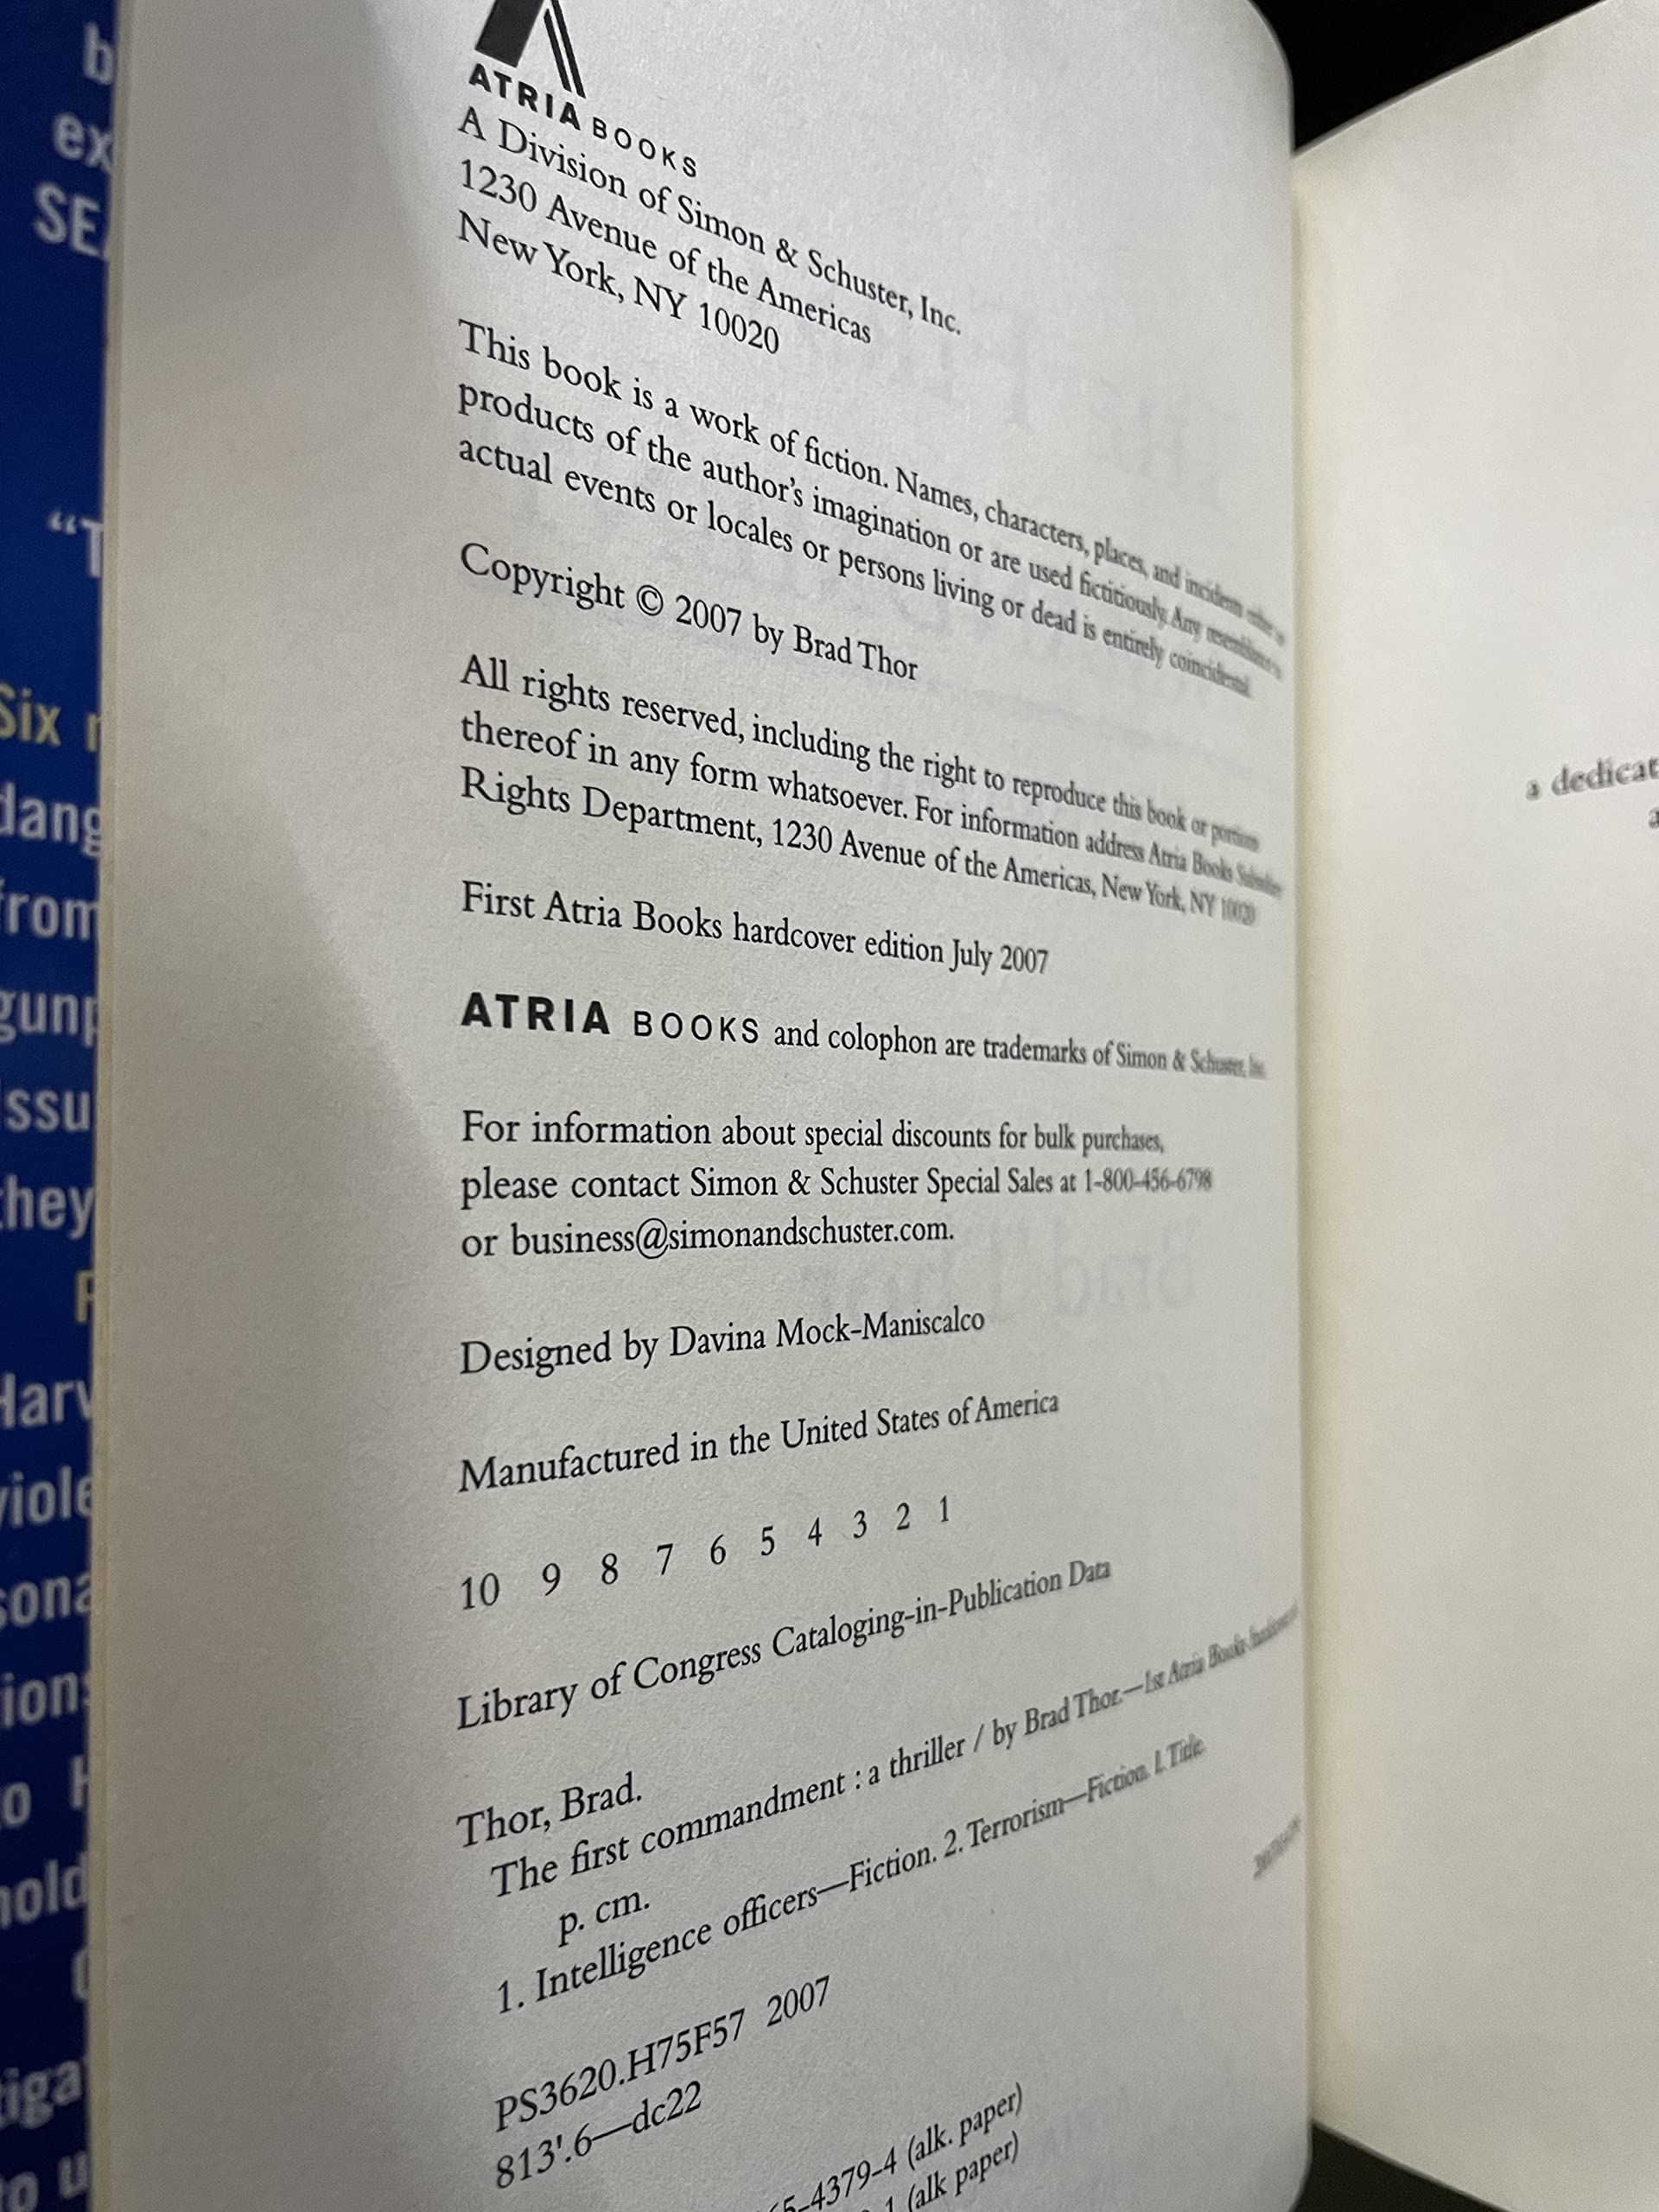 b
ex
SE
"T
Six
dang
from
gunp
Issu
they
Harv
viole
sona
ions
to
hold
tiga
to u
ATRIA BOOKS
A Division of Simon & Schuster, Inc.
1230 Avenue of the Americas
New York, NY 10020
This book is a work of fiction. Names, characters, places, and incidents either
products of the author's imagination or are used fictitiously. Any resemblance to
actual events or locales or persons living or dead is entirely coincidental.
Copyright © 2007 by Brad Thor
All rights reserved, including the right to reproduce this book or portions
thereof in any form whatsoever. For information address Atria Books Subsidiary
Rights Department, 1230 Avenue of the Americas, New York, NY 10020
First Atria Books hardcover edition July 2007
ATRIA BOOKS and colophon are trademarks of Simon & Schuster, Inc.
For information about special discounts for bulk purchases,
please contact Simon & Schuster Special Sales at 1-800-456-6798
or business@simonandschuster.com.
Designed by Davina Mock-Maniscalco
Manufactured in the United States of America
10 9 8 7 6 5 4 3 2 1
Library of Congress Cataloging-in-Publication Data
Thor, Brad.
The first commandment : a thriller / by Brad Thor.—1st Atria Books hardcover
p. cm.
1. Intelligence officers—Fiction. 2. Terrorism—Fiction. I. Title.
PS3620.H75F57 2007
813'.6—dc22
5-4379-4 (alk. paper)
1 (alk paper)
a dedicat
a